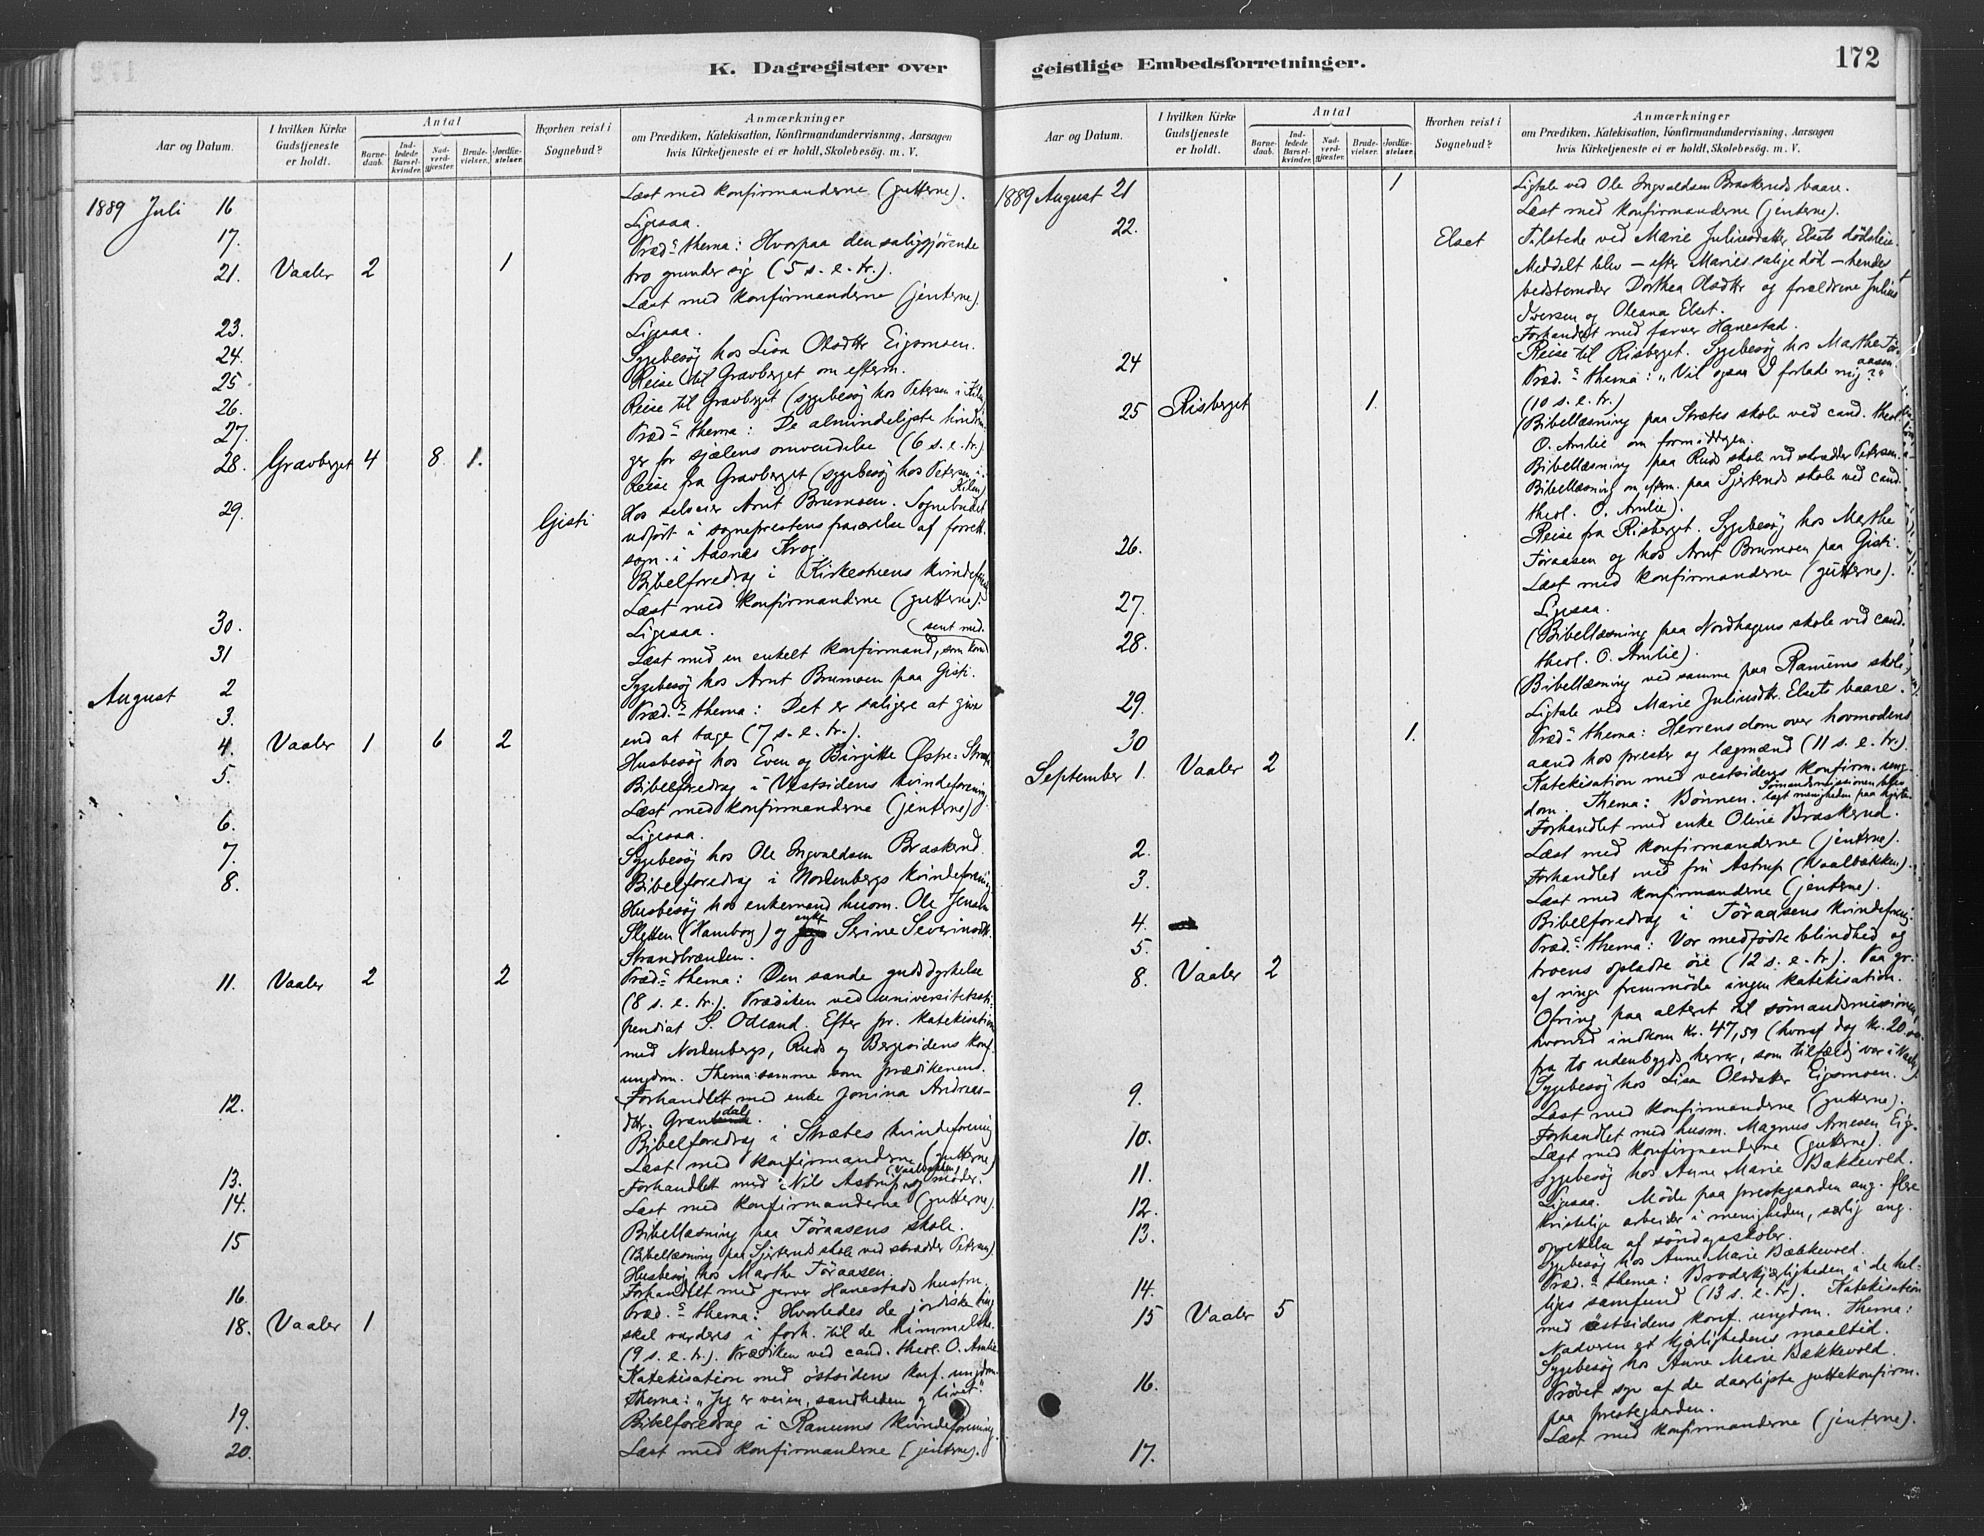 K. Dagregister over geistlige Embedsforretninger.
172
Aar og Datum.
I hvilken Kirke Gudstjeneste er holdt.
Antal
Barnedaab.
Indledede Barselkvinder.
Nadverdgjester.
Brudevielser.
Jordfæstelser.
Hvorhen reist i Sognebud?
Anmærkninger
om Prædiken, Katekisation, Konfirmandundervisning, Aarsagen
hvis Kirketjeneste ei er holdt, Skolebesög. m. V.
1889 Juli 16
Læst med konfirmanderne (gutterne).
17.
Ligesaa.
21. Vaaler 2 1
Præd.s thema: Hvorpaa den saliggjørende
tro grunder sig (5 s. e. tr.).
23.
Læst med konfirmanderne (jenterne).
24.
Ligesaa.
25
Sygebesøg hos Lisa Olsdtr Eigsmoen.
26.
Reise til Gravberget om efterm.
27.
Reise til Gravberget (sygebesøg hos Petersen i Kilen)
28. Gravberget 4 8 1.
Præd.s thema: De almindeligste hindrin-
ger for sjælens omvendelse (6 s. e. tr.).
29.
Reise fra Gravberget (sygebesøg hos Petersen i
Kilen)
Gisti
Hos selveier Arnt Brumoen. Sognebudet
udført i sogneprestens fravær­else af forrett.
sogn. i Aasnes Krog.
Bibelforedrag i Kirkestuens kvindeforen.
30.
Læst med konfirmanderne (gutterne).
31
Ligesaa.
(sent med.
August 2
Læst med en enkelt konfirmand, som kom
3.
Sygebesøg hos Arnt Brumoen paa Gisti.
4. Vaaler 1 6 2
Præd.s thema: Det er saligere at give
end at tage (7 s. e. tr.).
5.
Husbesøg hos Even og Birgitte Østre-Stræte
Bibelforedrag i Vestsidens kvindeforening
6.
Læst med konfirmanderne (jenterne)
7.
Ligesaa.
8.
Sygebesøg hos Ole Ingvaldsen Braskerud.
Bibelforedrag i Nordenbergs kvindeforening
Husbesøg hos enkemand husm. Ole Jensen
Sletten (Hamborg) og enke Serine Severinsdtr.
Strandbrænden.
11. Vaaler 2 2
Præd.s thema: Den sande gudsdyrkelse
(8 s. e. tr.). Prædiken ved universitetssti-
pendiat S. Odland. Efter pr. katekisation
med Nordenbergs, Ruds og Bergesidens konf.
ungdom. Thema: samme som prædikenens.
12.
Forhandlet med enke Jonina Andreas-
dtr. Grandal.
Bibelforedrag i Strætes kvindeforening
13.
Læst med konfirmanderne (gutterne)
14.
Forhandlet med Nils Astrup (Vaalbækken) og moder.
15
Læst med konfirmanderne (gutterne).
Bibellæsning paa Töraasens skole.
(Bibellæsning paa Sjerterud skole ved skrædder Petersen)
Husbesøg hos Marthe Töraasen.
16.
Forhandlet med garver Hanestads hustru.
18. Vaaler 1
Præd.s thema: Hvorledes de jordiske ting
skal vurderes i forh. til de himmelske.
(9 s. e. tr.). Prædiken ved cand. theol. O. Amlie
Katekisation med østsidens konf. ungdom.
Thema: "Jeg er veien, sandheden og livet."
19.
Bibelforedrag i Ranums kvindeforening.
20.
Læst med konfirmanderne (jenterne).
Aar og Datum.
I hvilken Kirke Gudstjeneste er holdt.
Antal
Barnedaab.
Indledede Barselkvinder.
Nadverdgjester.
Brudevielser.
Jordfæstelser.
Hvorhen reist i Sognebud?
Anmærkninger
om Prædiken, Katekisation, Konfirmandundervisning, Aarsagen
hvis Kirketjeneste ei er holdt, Skolebesög. m. V.
1889 August 21 1
Ligtale ved Ole Ingvaldsen Braskeruds baare.
Læst med konfirmanderne (jenterne).
22. Elset
Tilstede ved Marie Juliusdatter Elsets dødsleie.
Meddelt blev – efter Maries salige død – hendes
bedstemoder Dorthea Olsdtr og forældrene Julius
Iversen og Oleana Elset.
Forhandlet med farver Hanestad.
24
Reise til Risberget. Sygebesøg hos Marthe Tör-
aasen.
25 Risberget 1.
Præd.s thema: "Vil ogsaa I forlade mig?"
(10 s. e. tr.)
(Bibellæsning paa Strætes skole ved cand. theol.
O. Amlie om formiddagen.
Bibellæsning paa Ruds skole ved skrædder Petersen.
Bibellæsning om efterm. paa Sjerteruds skole ved cand.
theol. O. Amlie).
26.
Reise fra Risberget. Sygebesøg hos Marthe
Töraasen og hos Arnt Brumoen paa Gisti.
27.
Læst med konfirmanderne (gutterne).
28.
Ligesaa.
(Bibellæsning paa Nordhagens skole ved cand.
theol. O. Amlie).
29.
(Bibellæsning ved samme paa Ranums skole)
30 1.
Ligtale ved Marie Juliusdtr. Elsets baare.
September 1. Vaaler 2
Præd.s thema: Herrens dom over hovmodens
aand hos prester og lægmænd (11 s. e. tr.).
Katekisation med vestsidens konfirm. ung-
dom. Thema: Bønnen. Sømandsmissionen blev
lagt menigheden paa hjerte.
2.
Forhandlet med enke Oline Braskerud.
Læst med konfirmanderne (jenterne).
3.
Forhandlet med fru Astrup (Vaalbækken).
4.
Læst med konfirmanderne (jenterne).
5.
Bibelforedrag i Töraasens kvindeforen.
8. Vaaler 2
Præd.s thema: Vor medfødte blindhed og
troens opladte øie (12 s. e. tr.). Paa gr.
af ringe fremmøde ingen katekisation.
Ofring paa alteret til sømandsmissionen,
hvorved indkom kr. 47,59 (hvoraf dog kr. 20.00
fra to udenbygds herrer, som tilfældig var i Vaaler).
9.
Sygebesøg hos Lisa Olsdatter Eigsmoen.
Læst med konfirmanderne (gutterne).
10.
Forhandlet med husm. Magnus Arnesen Eig-
Læst med konfirmanderne (gutterne).
11.
Sygebesøg hos Anne Marie Bækkevold.
12.
Ligesaa. Møde paa prestegaarden ang. flere
13.
kristelige arbeider i menigheden, særlig ang.
oprettelse af søndagsskoler.
14.
Sygebesøg hos Anne Marie Bækkevold.
15 Vaaler 5
Præd.s thema: Broderkjærligheden i de hel-
liges samfund (13 s. e. tr.). Katekisation
med østsidens konf. ungdom. Thema:
Nadveren et kjærlighedens maaltid.
16.
Sygebesøg hos Anne Marie Bækkevold.
Prøvet syv af de daarligste guttekonfirm.
paa prestegaarden.
17.
Læst med konfirmanderne (jenterne).